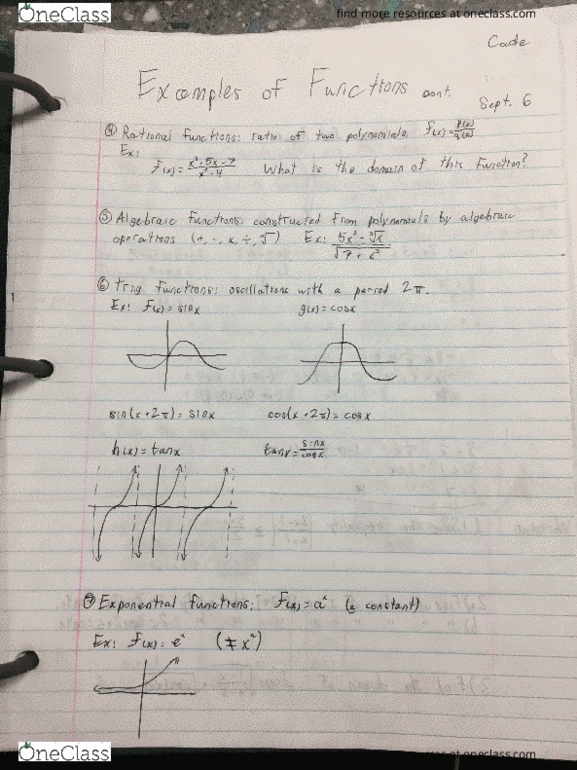 OneClass
find more resources at oneclass.com
Cade
Examples of Functions cont.
Sept. 6
④ Rational Functions: ratio of two polynomials f(x)=p(x)/q(x)
Ex:
f(x)= What is the domain of this function?
⑤ Algebraic Functions: constructed from polynomials by algebraic
operations (+, -, x, ÷, √) Ex: 5x² - ∛x / √7+x²
⑥ trig functions: oscillations with a period 2π.
Ex: f(x)=sinx g(x)=cosx
sin(x+2π)=sinx cos(x+2π)=cosx
h(x)=tanx tanx=sinx/cosx
⑦ Exponential functions: f(x)=aˣ (a constant)
Ex: f(x)=eˣ (≠x²)
OneClass
find more resources at oneclass.com